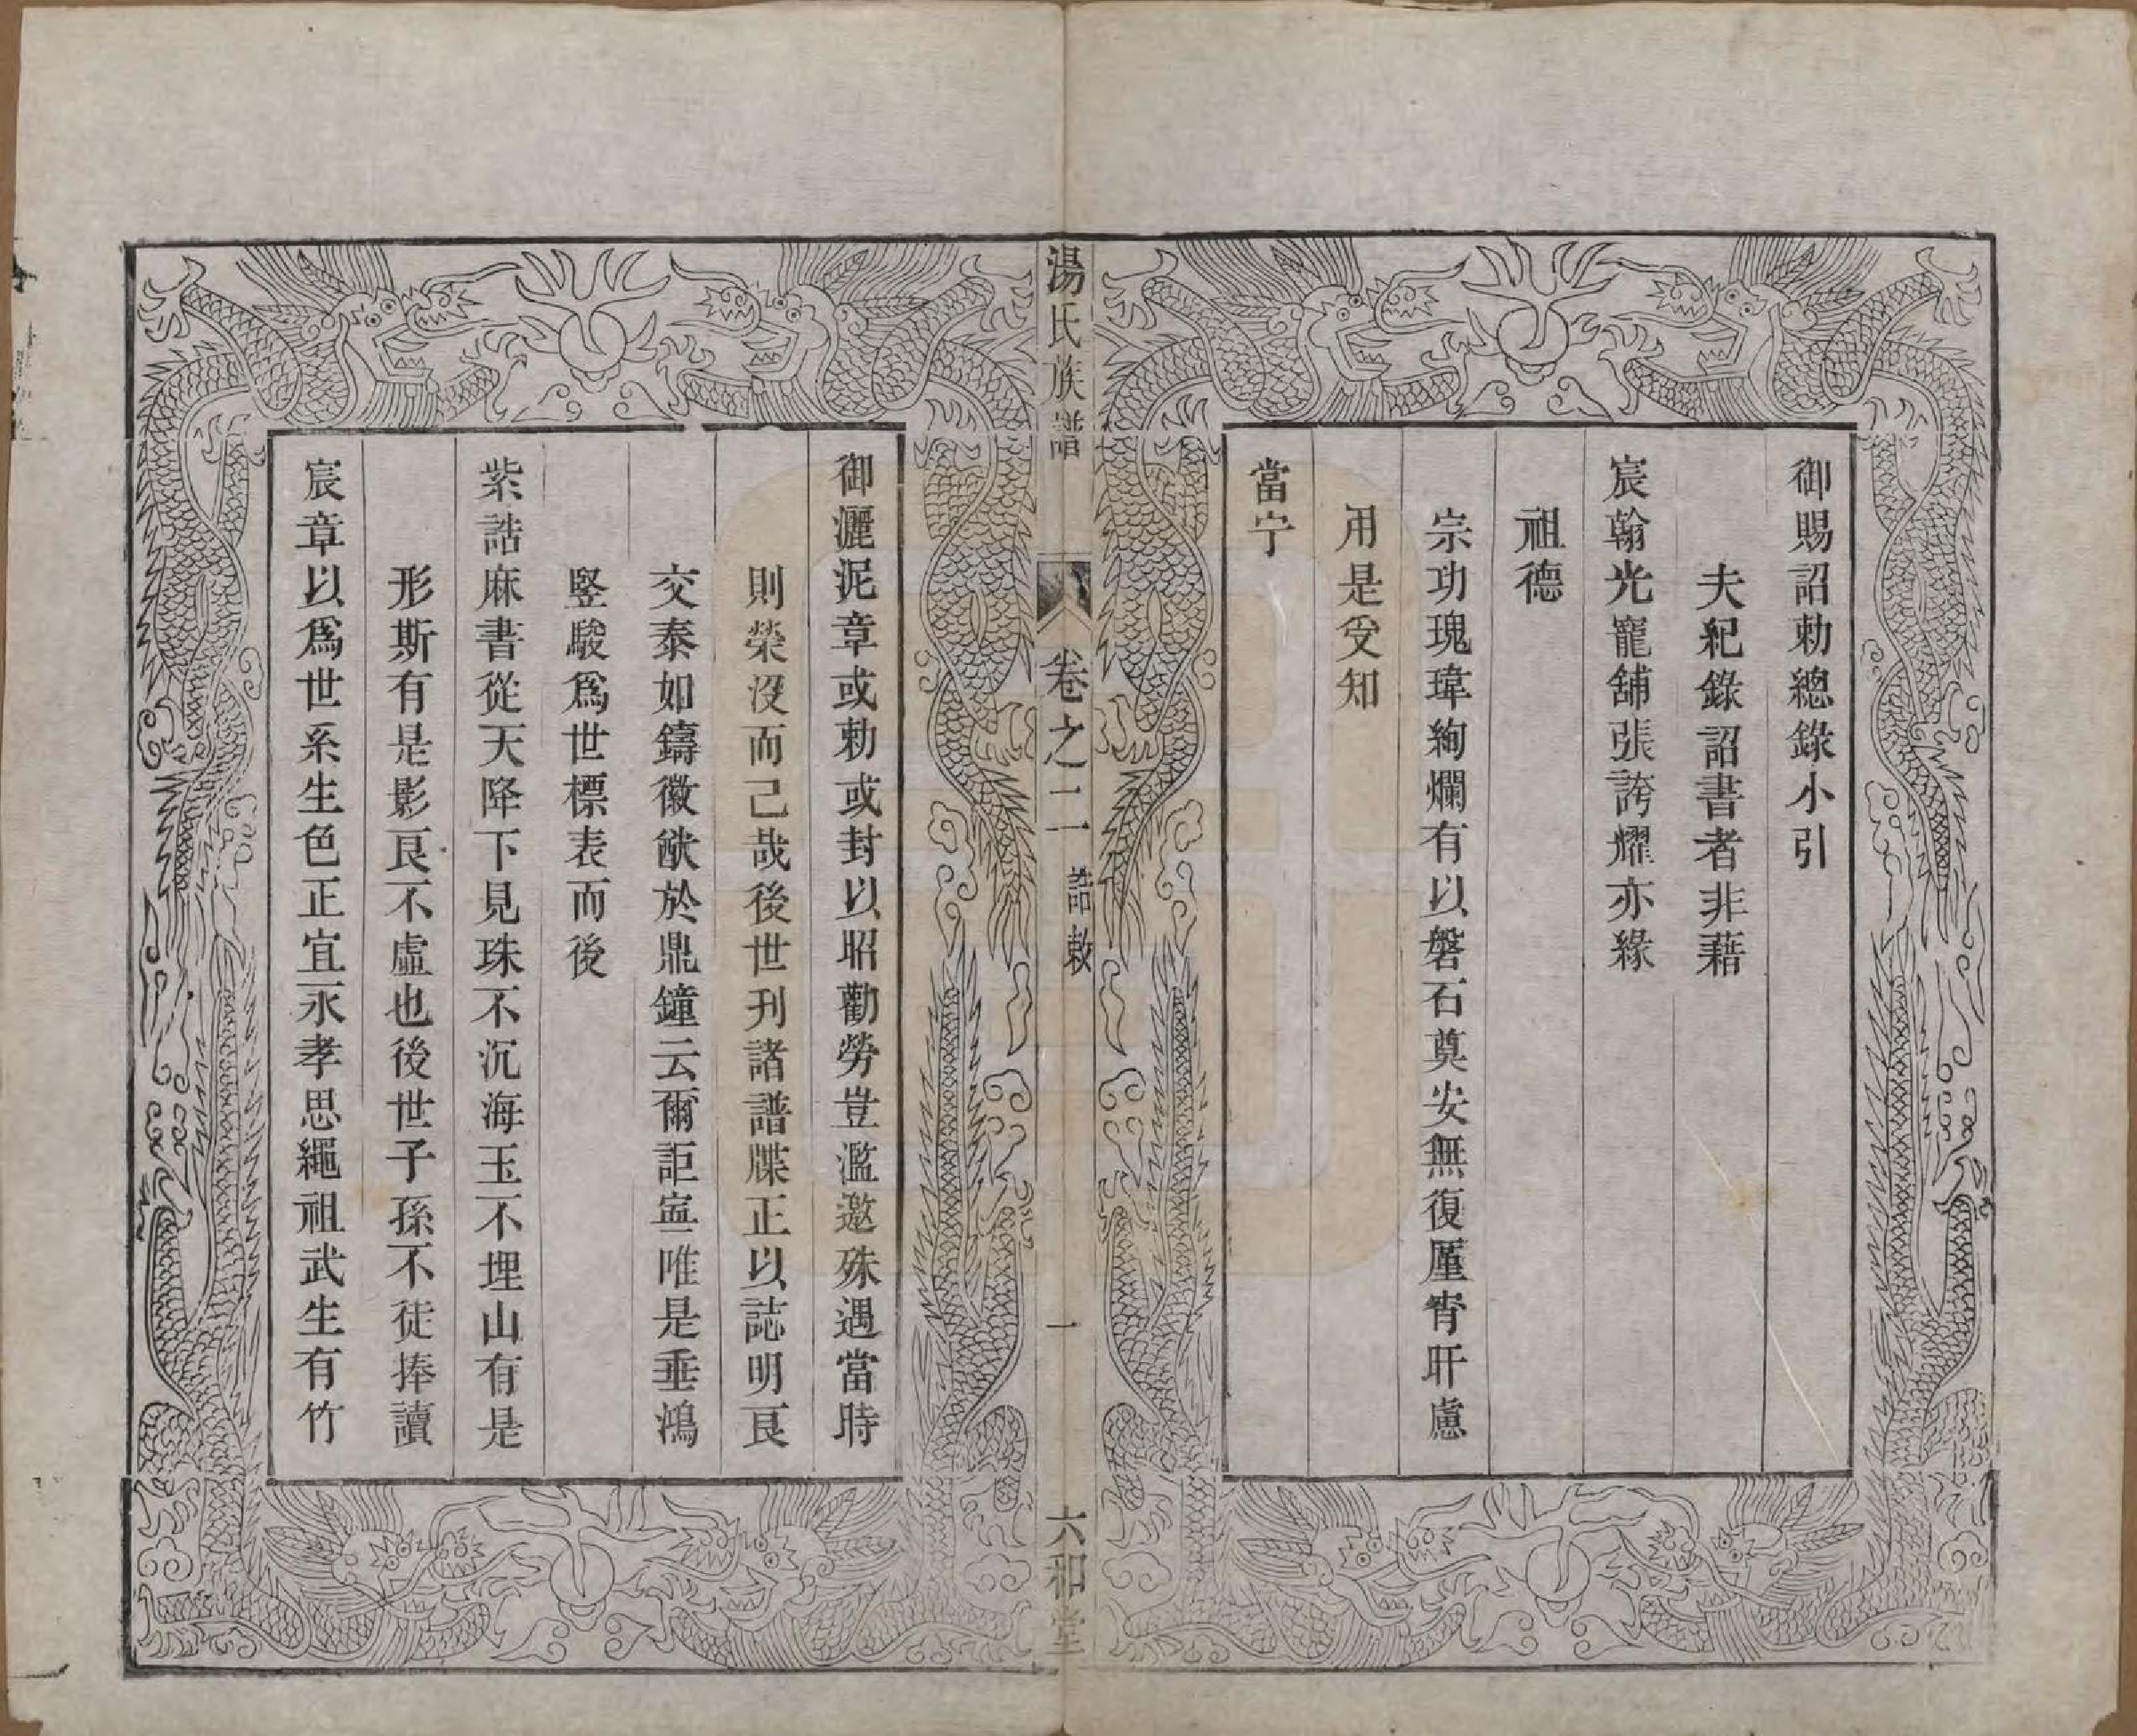 御賜詔勅總錄小引
夫紀錄詔書者非藉
宸翰光寵舖張誇耀亦緣
祖德
宗功瑰瑋絢爛有以磐石奠安無復厪宵旰慮
用是受知
當宁
湯氏族譜 卷之二 誥敕 一 六和堂
御灑泥章或勅或封以昭勸勞豈濫邀殊遇當時
則榮沒而已哉後世刋諸譜牒正以誌明良
交泰如鑄徽猷於鼎鐘云爾詎寍唯是垂鴻
竪駿爲世標表而後
紫誥麻書從天降下見珠不沉海玉不埋山有是
形斯有是影良不虛也後世子孫不徒捧讀
宸章以爲世系生色正宜永孝思繩祖武生有竹